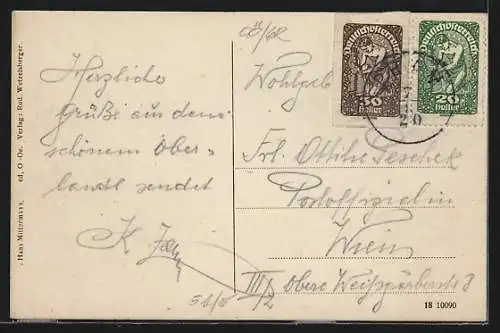 Herzliche
Grüße aus dem
schönem Ober-
landl sendet
K.
Wohlgeb
Frl. Ottilie Peschek
Postoffizialin
Wien
III/2 Obere Weißgärberstr 8
Deutschösterreich
30
Heller
Deutschösterreich
20
Heller
20
18 10090
ed, O.-Oe. Verlag: Rud. Wetzelsberger.